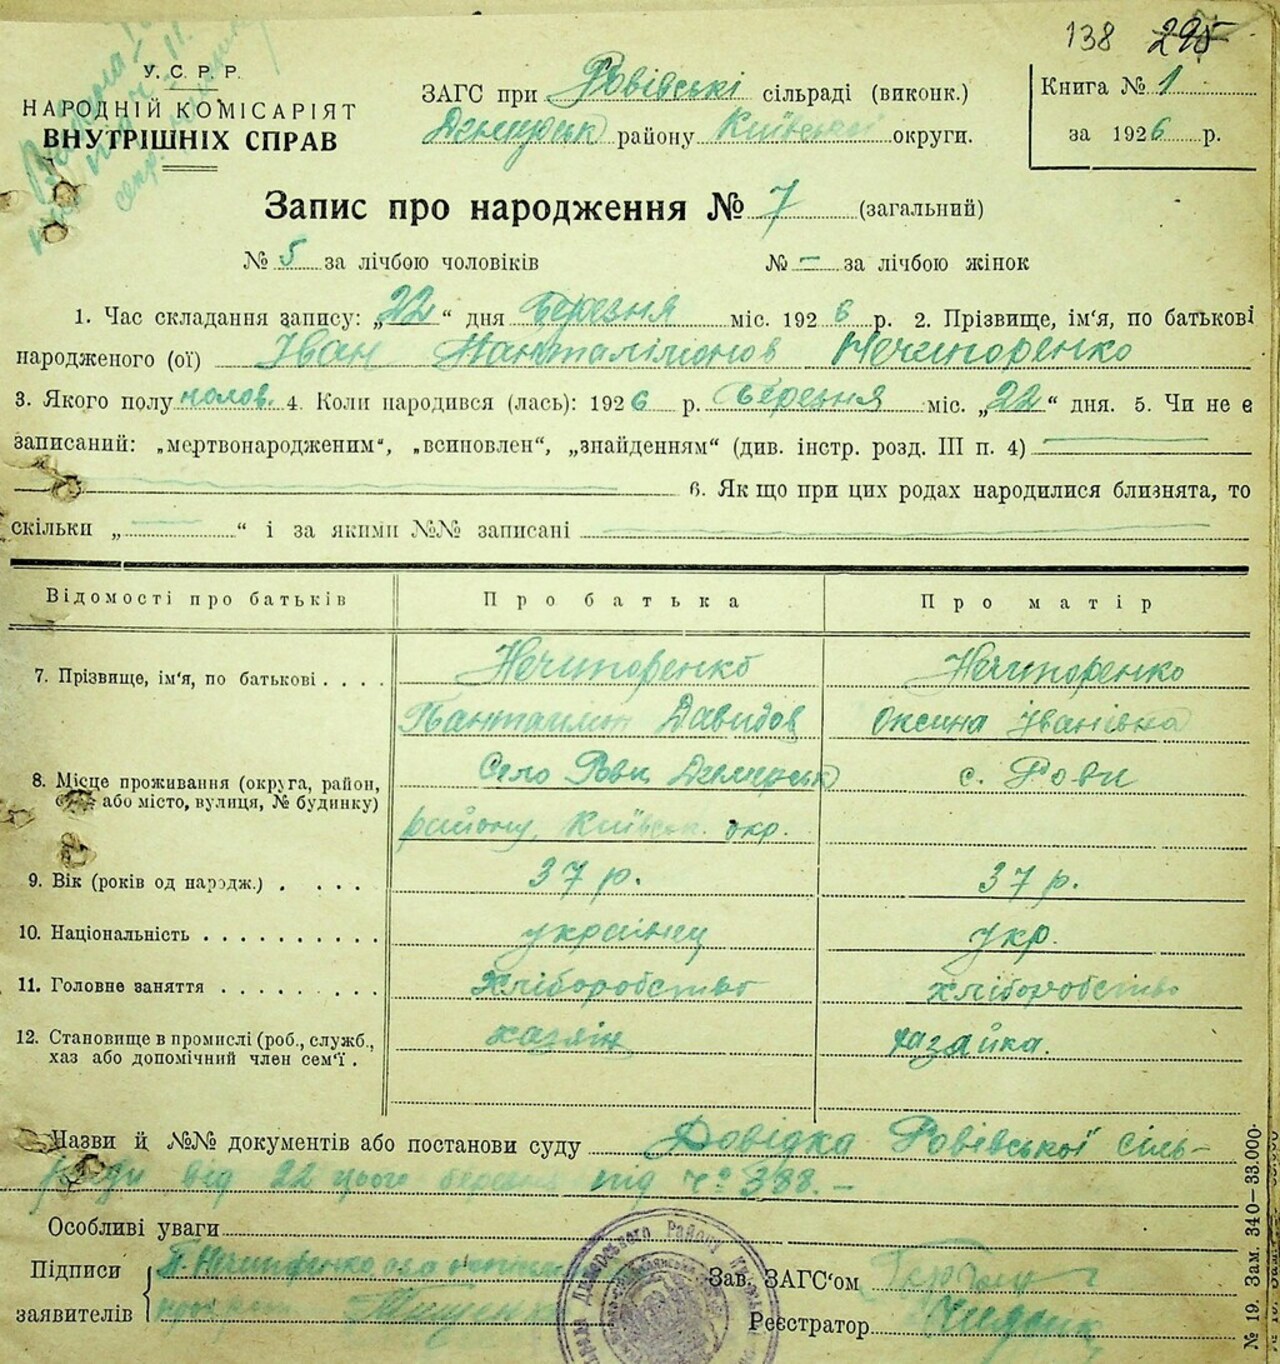 138 295
У. С. Р. Р.
НАРОДНІЙ КОМІСАРІЯТ
ВНУТРІШНІХ СПРАВ
ЗАГС при Ровівські сільраді (виконк.)
Димирськ району Київської округи.
Книга № 1
за 1926 р.
Запис про народження № 7 (загальний)
№ 5 за лічбою чоловіків № – за лічбою жінок
1. Час складання запису: „22“ дня Березня міс. 1926 р. 2. Прізвище, ім'я, по батькові
народженого (ої) Іван Нечипоренко
3. Якого полу 4. Коли народився (лась): 1926 р. Березня міс. „22“ дня. 5. Чи не є
записаний: „мертвонародженим“, „всиновлен“, „знайденням“ (див. інстр. розд. III п. 4)
6. Якщо при цих родах народилися близнята, то
скільки „ “ і за якими №№ записані
Відомості про батьків Про батька Про матір
7. Прізвище, ім'я, по батькові . . . . Нечипоренко Нечипоренко
Пантаимон Давидов Оксина Іванівна
8. Місце проживання (округа, район, Село Рови Димирськ с. Рови
або місто, вулиця, № будинку)
району, Київськ. окр.
9. Вік (років од народж.) . . . . 37 р. 37 р.
10. Національність . . . . . . . . . . українец укр.
11. Головне заняття . . . . . . . . . Хліборобство хліборобство
12. Становище в промислі (роб., служб., хазяін хазайка.
хаз або допомічний член сем'ї .
Назви й №№ документів або постанови суду Довідка Ровівської сіль-
ради від 22 цього березня під ч° 388. –
Особливі уваги
Підписи П. Нечипоренко Зав. ЗАГС'ом
заявителів Тищенко Реєстратор
Димерського Району
№ 19. Зам. 340—33.000.